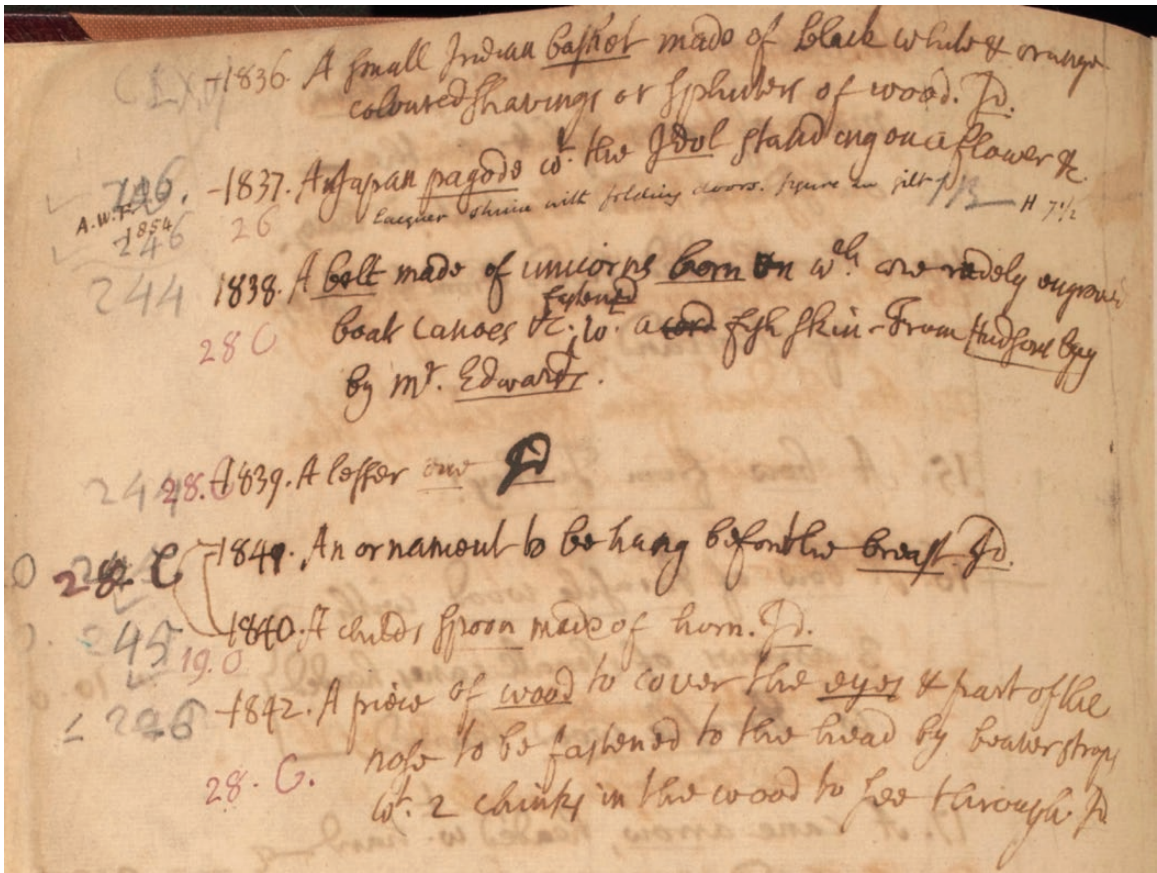 1836. A small Indian basket made of black white & orange
coloured shavings or splinters of wood. Id.
1837. A Japan pagode wt. the Idol standing on a flower &c.
Lacquer shrine with folding doors. figure in gilt H 7½
246.
A.W.F. 1854
246
26
244
1838. A belt made of unicorns horn on wch. are rudely engraved
fastned
boat canoes &c. wt. a cord fish skin - From Hudsons bay
28 C
by Mr. Edwards.
244
28. C
1839. A lesser one Id
28. C
1841. An ornament to be hung before the breast. Id.
1840. A childs spoon made of horn. Id.
245
19. C
246
1842. A piece of wood to cover the eyes & part of the
nose to be fastened to the head by beaver straps
28. C.
wt. 2 chinks in the wood to see through. Id